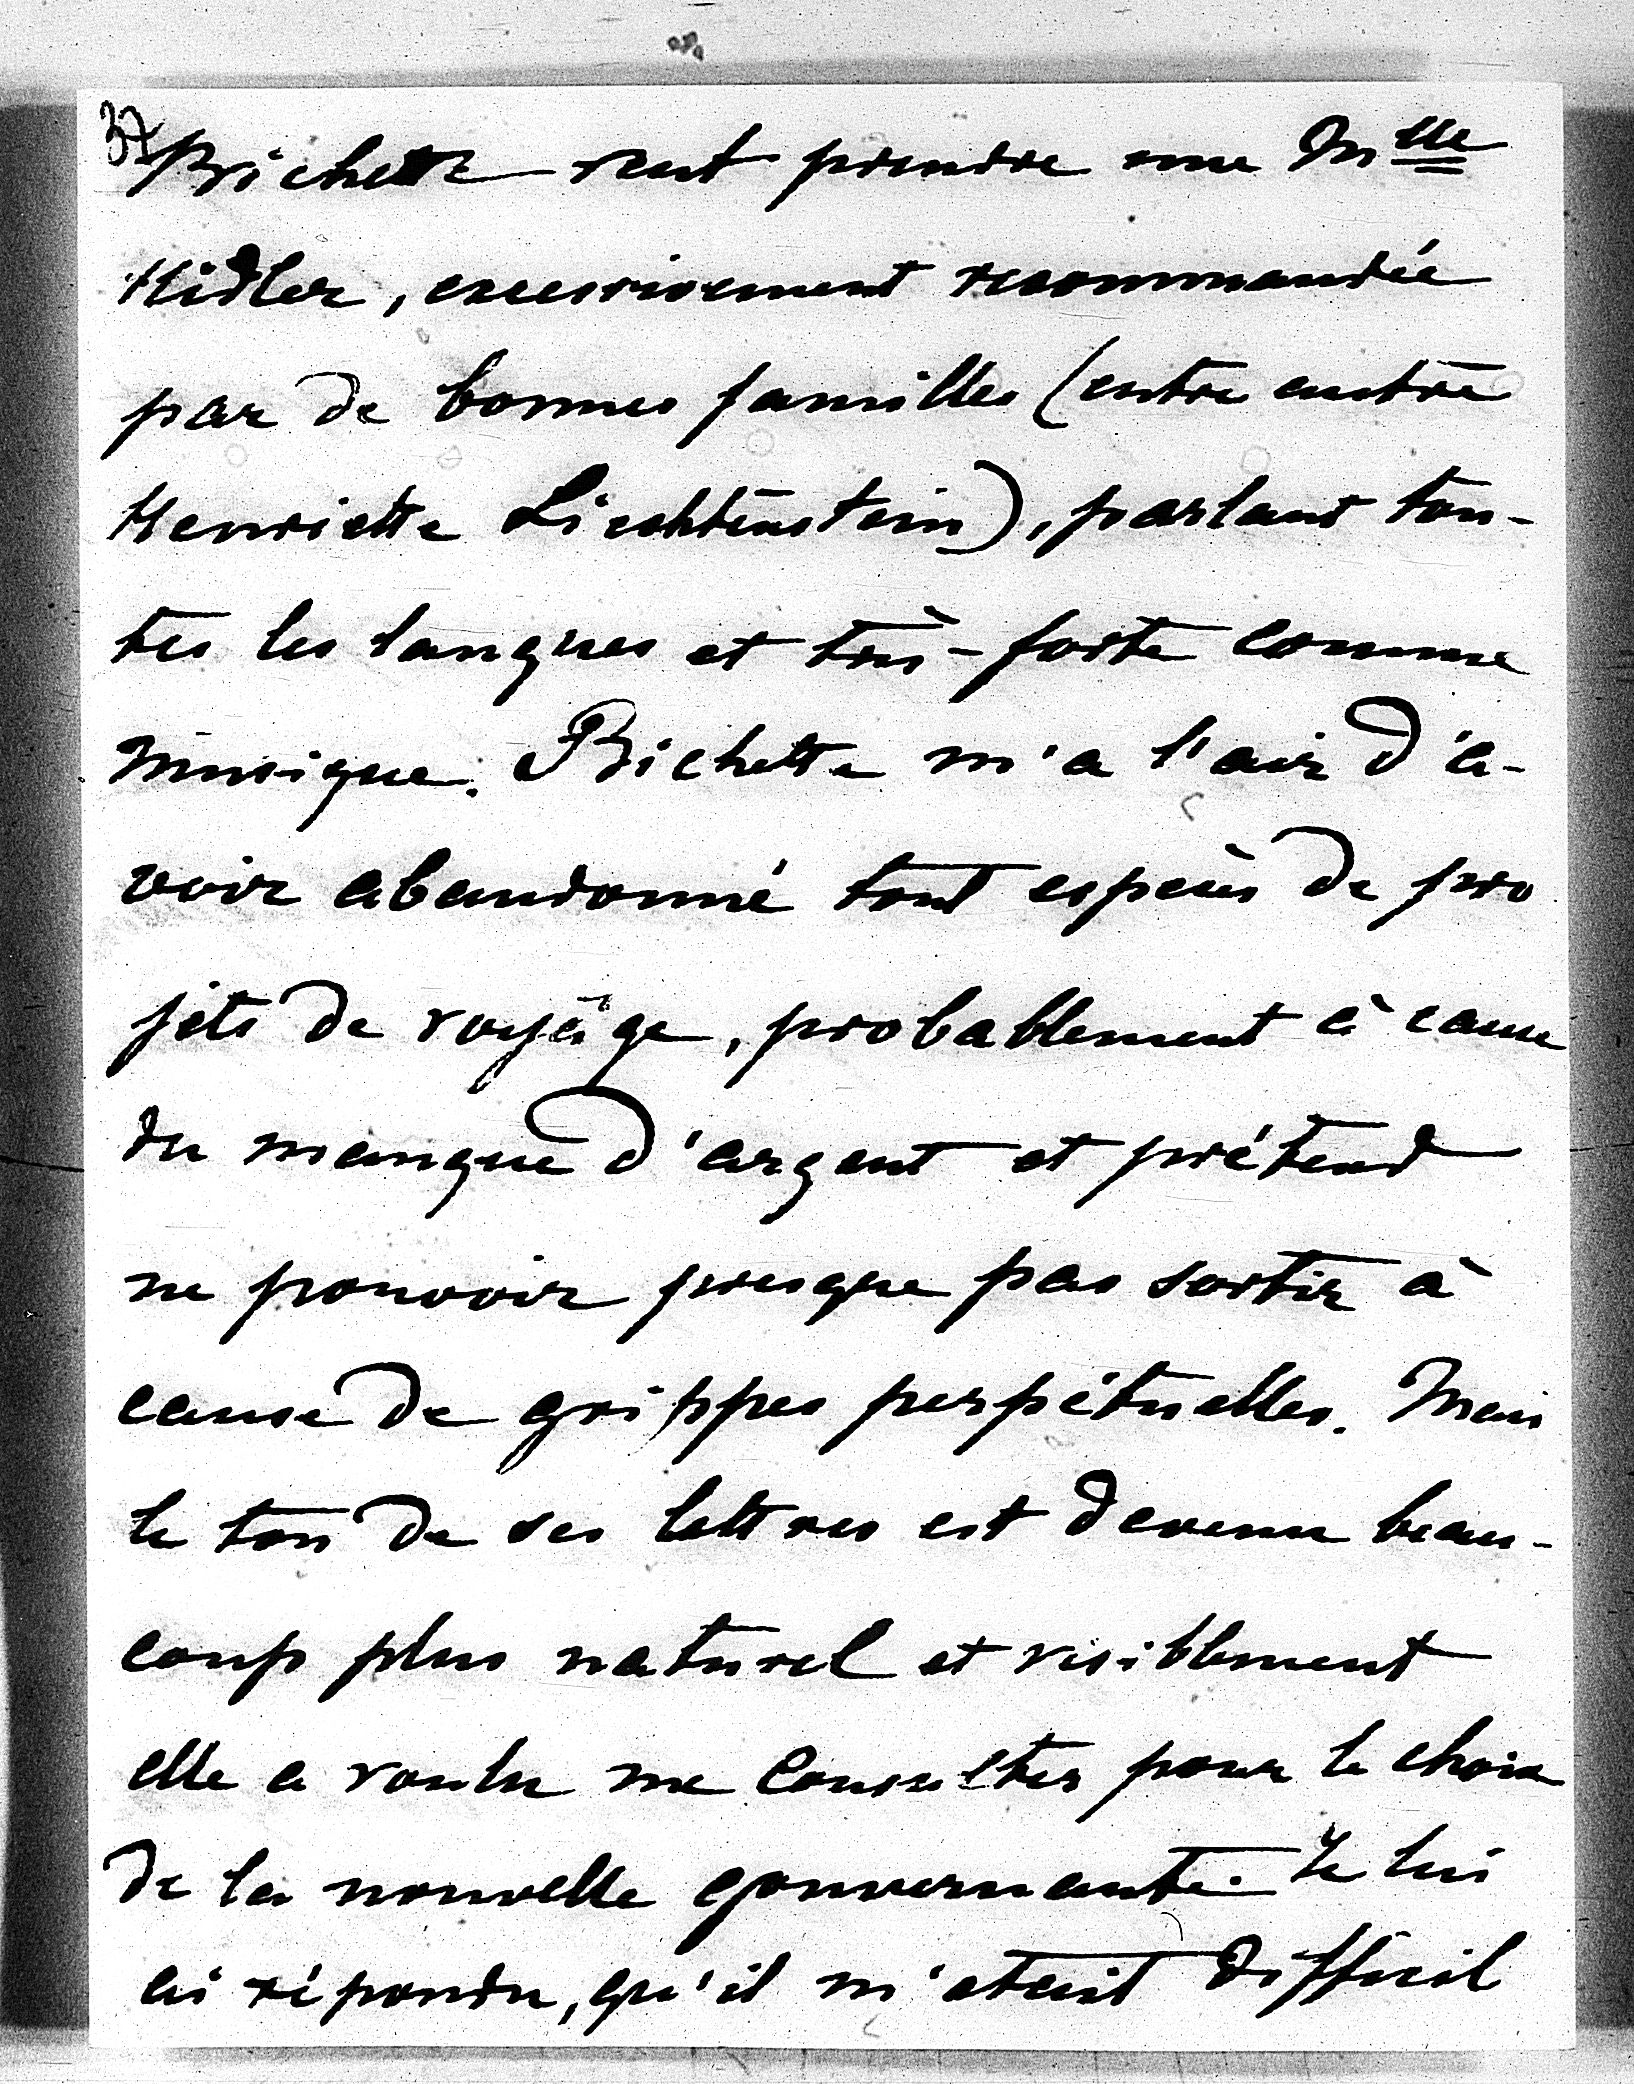 37
Bichette veut prendre une Mlle
Hidler, excessivement recommandée
par de bonnes familles (entre autre
Henriette Liechtenstein), parlant tou-
tes les langues et très-forte comme
musique. Bichette m'a l'air d'a-
voir abandonné tout espèces de pro
jets de voyage, probablement à cause
du manque d'argent et prétend
ne pouvoir presque pas sortir à
cause de grippes perpétuelles. Mais
le ton de ses lettres est devenu beau-
coup plus naturel et visiblement
elle a voulu me consulter pour le choix
de la nouvelle gouvernante. Je lui
ai répondu, qu'il m'était difficil